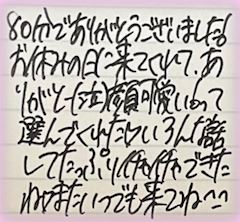 80分でありがとうございました!
お休みの日に来てくれて、あ
りがとー(泣)顔可愛いって
選んでくれたりいろんな話
してたっぷりイチャイチャできた
ねまたいつでも来てね^^